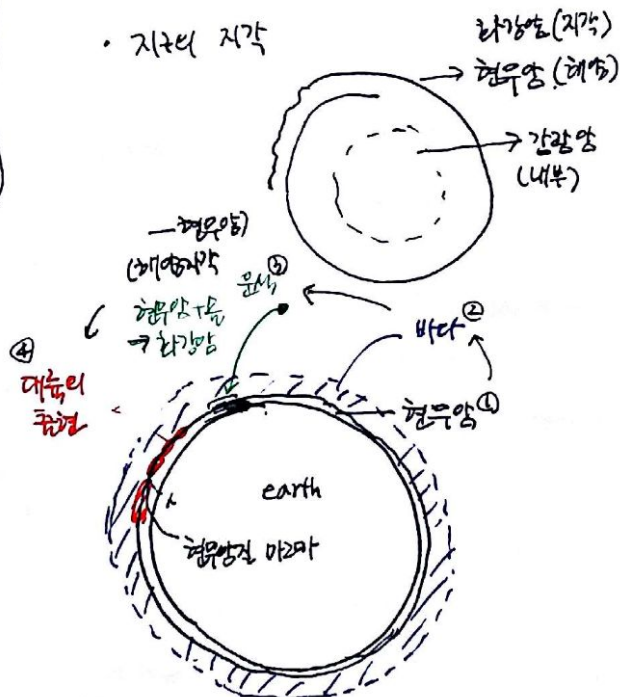 · 지구의 지각
화강암 (지각)
현무암 (해양)
감람암
(내부)
현무암)
(해양지각
현무암+물
→ 화강암
운석③
바다②
현무암①
④
대륙의
출현
earth
현무암질 마그마